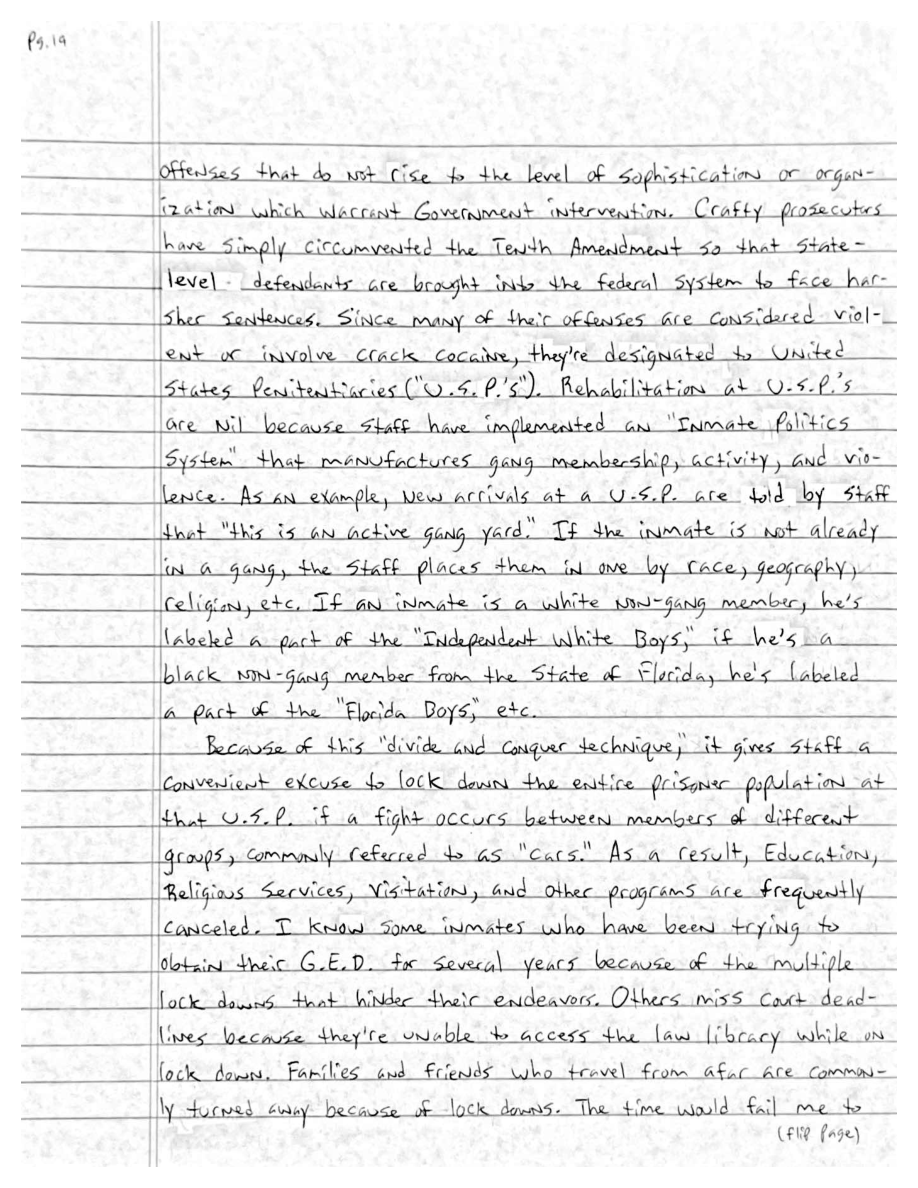 Pg. 19
offenses that do not rise to the level of sophistication or organ-
ization which warrant Government intervention. Crafty prosecutors
have simply circumvented the Tenth Amendment so that state-
level defendants are brought into the federal system to face har-
sher sentences. Since many of their offenses are considered viol-
ent or involve crack cocaine, they're designated to United
States Penitentiaries ("U.S.P.'s"). Rehabilitation at U.S.P.'s
are nil because staff have implemented an "Inmate Politics
System" that manufactures gang membership, activity, and vio-
lence. As an example, new arrivals at a U.S.P. are told by staff
that "this is an active gang yard." If the inmate is not already
in a gang, the staff places them in one by race, geography,
religion, etc. If an inmate is a white non-gang member, he's
labeled a part of the "Independent White Boys," if he's a
black non-gang member from the State of Florida, he's labeled
a part of the "Florida Boys," etc.
Because of this "divide and conquer technique," it gives staff a
convenient excuse to lock down the entire prisoner population at
that U.S.P. if a fight occurs between members of different
groups, commonly referred to as "cars." As a result, Education,
Religious Services, Visitation, and other programs are frequently
canceled. I know some inmates who have been trying to
obtain their G.E.D. for several years because of the multiple
lock downs that hinder their endeavors. Others miss court dead-
lines because they're unable to access the law library while on
lock down. Families and friends who travel from afar are common-
ly turned away because of lock downs. The time would fail me to
(flip page)